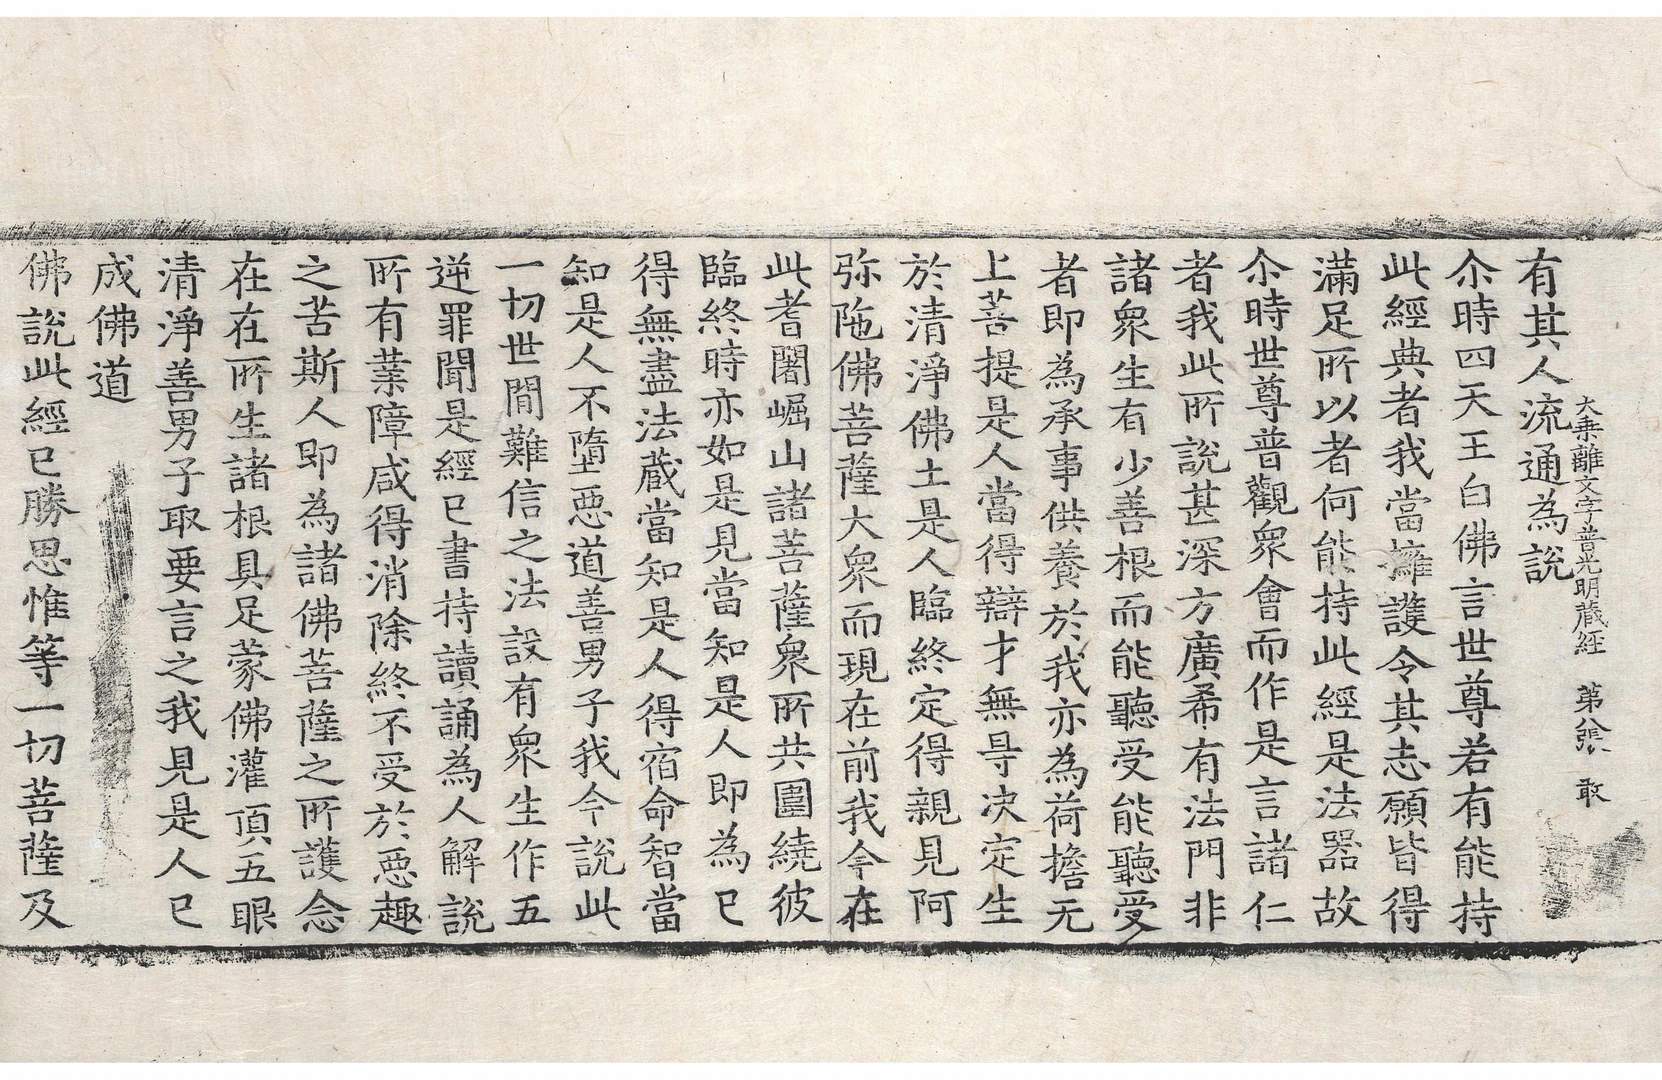 大乗離文字普光明藏經 苐八張 敢
有其人流通為說
尒時四天王白佛言世尊若有能持
此經典者我當擁護令其志願皆得
滿足所以者何能持此經是法器故
尒時世尊普觀眾會而作是言諸仁
者我此所說甚深方廣希有法門非
諸眾生有少善根而能聽受能聽受
者即為承事供養於我亦為荷擔无
上菩提是人當得辯才無㝵决定生
於清淨佛土是人臨終定得親見阿
弥陁佛菩薩大眾而現在前我今在
此耆闍崛山諸菩薩眾所共圍繞彼
臨終時亦如是見當知是人即為已
得無盡法蔵當知是人得宿命智當
知是人不墮惡道善男子我今說此
一切世間難信之法設有眾生作五
逆罪聞是經已書持讀誦為人解說
所有業障咸得消除終不受於惡趣
之苦斯人即為諸佛菩薩之所護念
在在所生諸根具足蒙佛灌頂五眼
清淨善男子取要言之我見是人已
成佛道
佛說此經已勝思惟等一切菩薩及